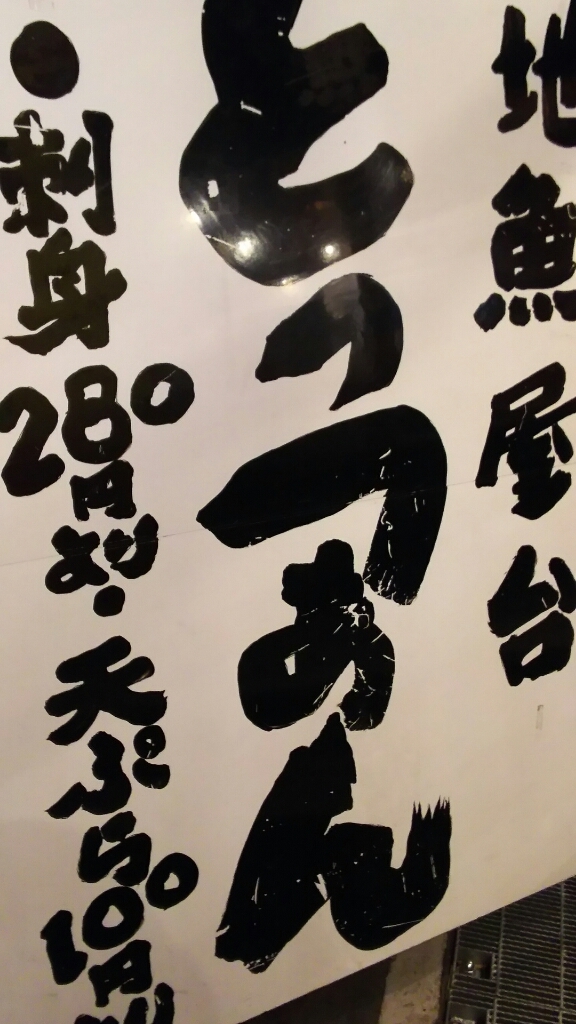 地魚屋台
とっつあん
・刺身280円より・天ぷら100円